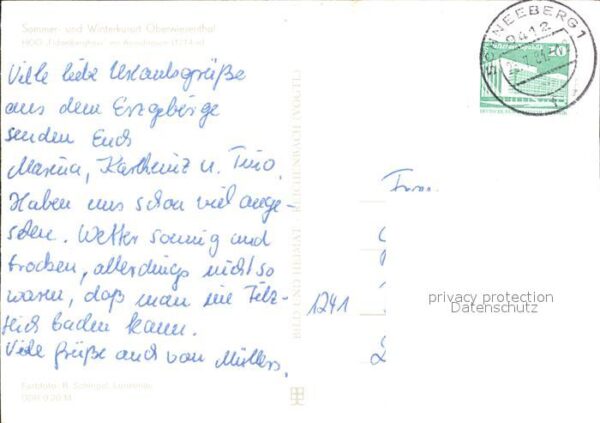 Sommer- und Winterkurort Oberwiesenthal
HOG „Fichtelberghaus" mit Aussichtsturm (1214 m)
Viele liebe Urlaubsgrüße
aus dem Erzgebirge
senden Euch
Marina, Karlheinz u. Tino.
Haben uns schon viel ange-
sehen. Wetter sonnig und
trocken, allerdings nicht so
warm, daß man im Filz-
teich baden kann.
Viele Grüße auch von Müllers.
Farbfoto: R.
DDR 0,20 M
BILD UND HEIMAT REICHENBACH (VOGTL)
SCHNEEBERG 1
9412
20
Fam.
1241
privacy protection
Datenschutz